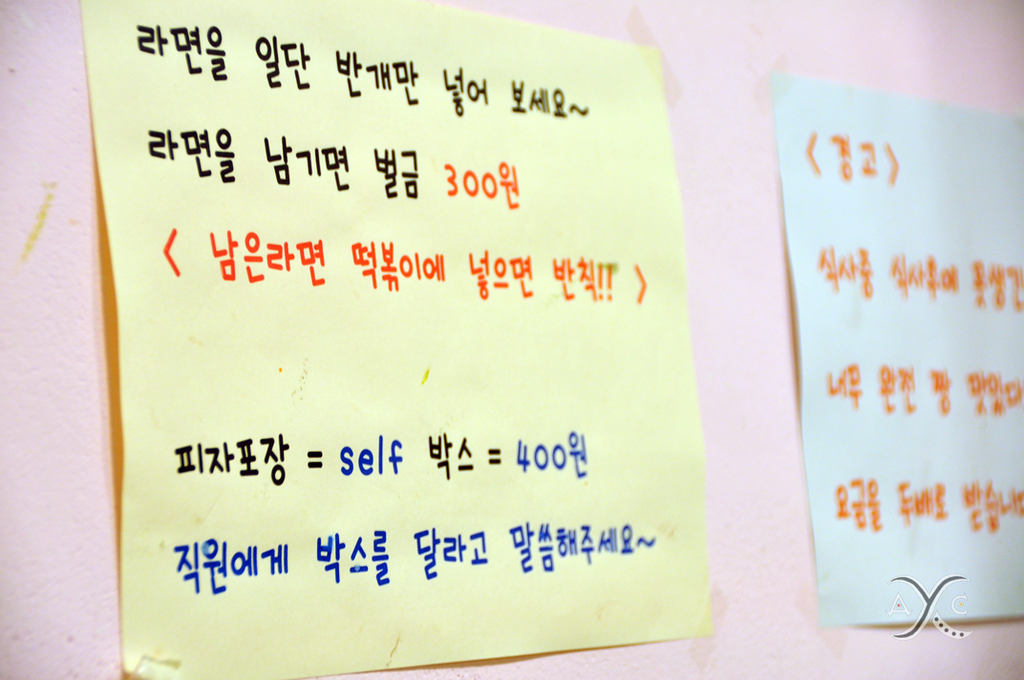 라면을 일단 반개만 넣어 보세요~
라면을 남기면 벌금 300원
< 남은라면 떡볶이에 넣으면 반칙!! >
피자포장 = self 박스 = 400원
직원에게 박스를 달라고 말씀해주세요~
< 경고 >
식사중 식사후에 못생긴
너무 완전 짱 맛있다
요금을 두배로 받습니다
AYC